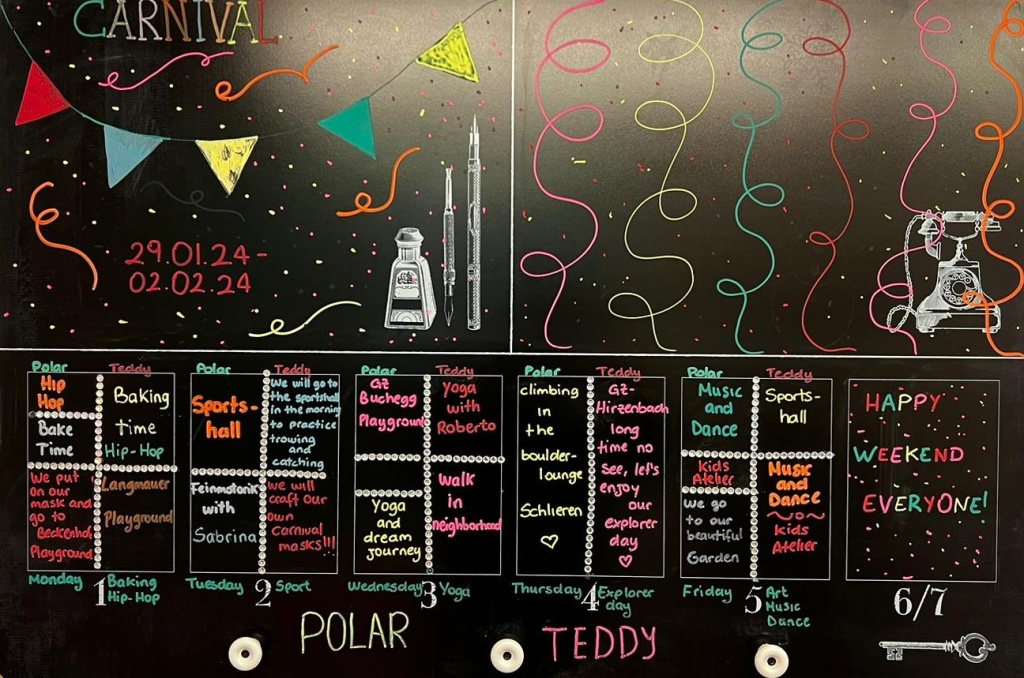 CARNIVAL
29.01.24-
02.02.24
Polar
Hip
Hop
Bake
Time
We put
on our
mask and
go to
Beckenhof
Playground
Teddy
Baking
time
Hip-Hop
Langmauer
Playground
Monday
1
Baking
Hip-Hop
Polar
Sports-
hall
Feinmotorik
with
Sabrina
Teddy
We will go to
the sportshall
in the morning
to practice
trowing
and
catching
we will
craft our
own
Carnival
masks!!!
Tuesday
2
Sport
Polar
GZ
Buchegg
Playground
Yoga
and
dream
journey
Teddy
Yoga
with
Roberto
walk
in
neighborhood
Wednesday
3
Yoga
Polar
climbing
in
the
boulder-
lounge
Schlieren
Teddy
GZ-
Hirzenbach
long
time no
see, let's
enjoy
our
explorer
day
Thursday
4
Explorer
day
Polar
Music
and
Dance
kids
Atelier
we go
to our
beautiful
Garden
Teddy
Sports-
hall
Music
and
Dance
kids
Atelier
Friday
5
Art
Music
Dance
HAPPY
WEEKEND
EVERYONE!
6/7
POLAR
TEDDY